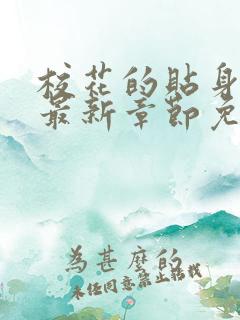 校花的貼身
最新章節免
為甚麼的
未任同意禁止轉載